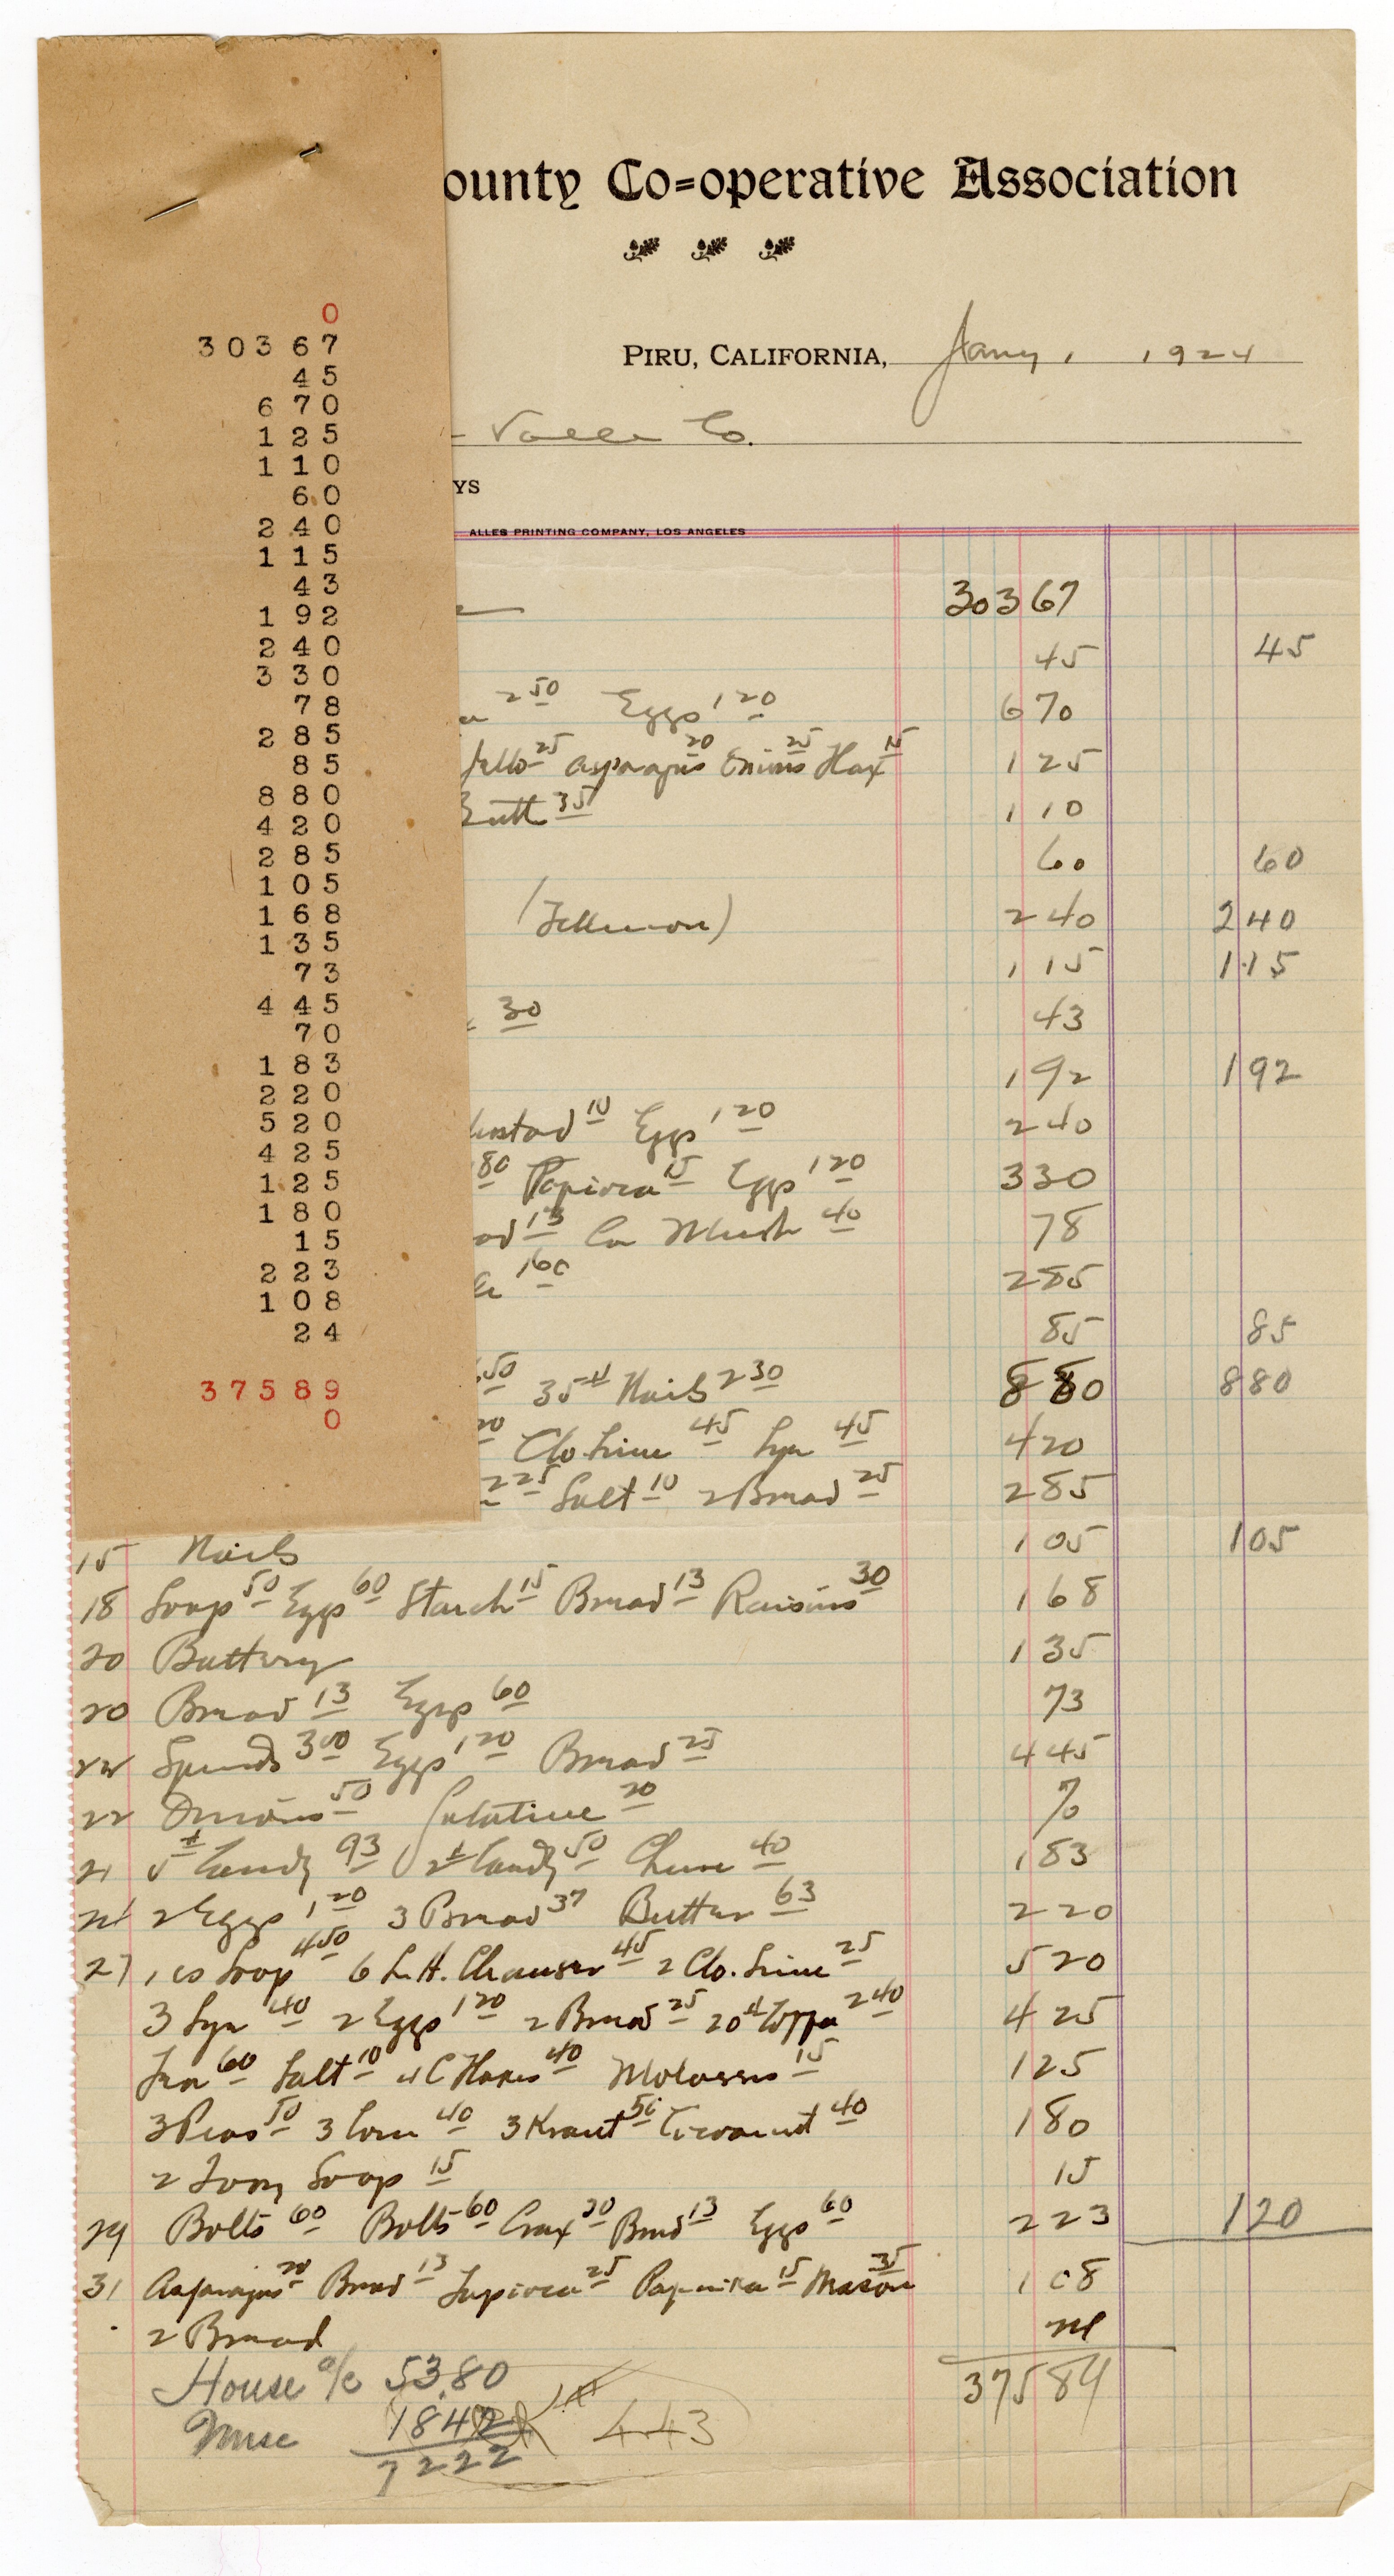 0
30367
45
670
125
110
60
240
115
43
192
240
330
78
285
85
880
420
285
105
168
135
73
445
70
183
220
520
425
125
180
15
223
108
24
37589
0
ounty Co=operative Association
PIRU, CALIFORNIA, Jany 1 1924
Valle Co.
YS
ALLES PRINTING COMPANY, LOS ANGELES
303 67
45 45
2 50 Eggs 1 20 6 70
Jello 25 Asparagus 20 Onions 25 15 1 25
Butt 35 1 10
60 60
2 40 2 40
1 15 1 15
30 43
1 92 1 92
10 Eggs 1 20 2 40
80 Tapioca 15 Eggs 1 20 3 30
13 Mush 40 78
1 60 2 85
85 85
50 35# Nails 2 30 8 80 8 80
Clo Line 45 Lye 45 4 20
2 25 Salt 10 2 Bread 25 2 85
15 Nails 1 05 1 05
18 Soap 50 Eggs 60 Starch 15 Bread 13 Raisins 30 1 68
20 Battery 1 35
20 Bread 13 Eggs 60 73
Spuds 3 00 Eggs 1 20 Bread 25 4 45
22 Onions 50 Gelatine 20 70
21 5# Candy 93 2# Candy 50 40 1 83
2 Eggs 1 20 3 Bread 37 Butter 63 2 20
27 1 cs Soap 4 50 6 L.H. Cleanser 45 2 Clo. Line 25 5 20
3 Lye 40 2 Eggs 1 20 2 Bread 25 20# Coffee 2 40 4 25
Tea 60 Salt 10 4 C Flakes 40 Molasses 15 1 25
3 Peas 50 3 Corn 40 3 Kraut 50 Cocoanut 40 1 80
2 Ivory Soap 15 15
29 Bolts 60 Bolts 60 Crax 30 Bread 13 Eggs 60 2 23 1 20
31 Asparagus 20 Bread 13 Tapioca 25 Paprika 15 Mason 35 1 08
2 Bread 24
House a/c 53.80 375 89
Misc 18 42 443
72 22